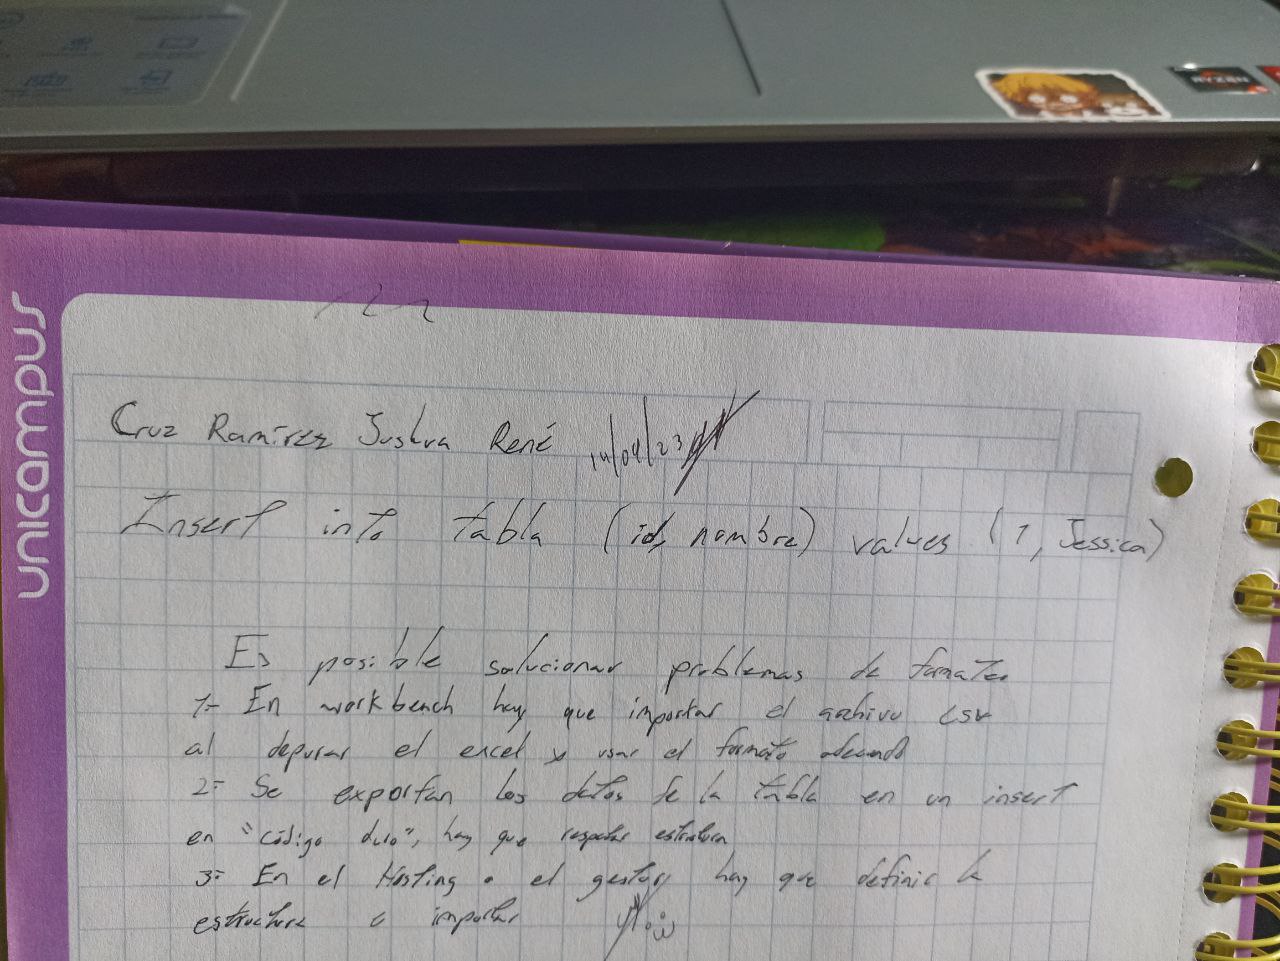 RYZEN
unicampus
Cruz Ramírez Joshua René 14/04/23
Insert into tabla (id, nombre) values (1, Jessica)
Es posible solucionar problemas de formato
1- En workbench hay que importar el archivo csv
al depurar el excel y usar el formato adecuado
2- Se exportan los datos de la tabla en un insert
en "código duro", hay que respetar estructura
3- En el Hosting o el gestor, hay que definir la
estructura a importar